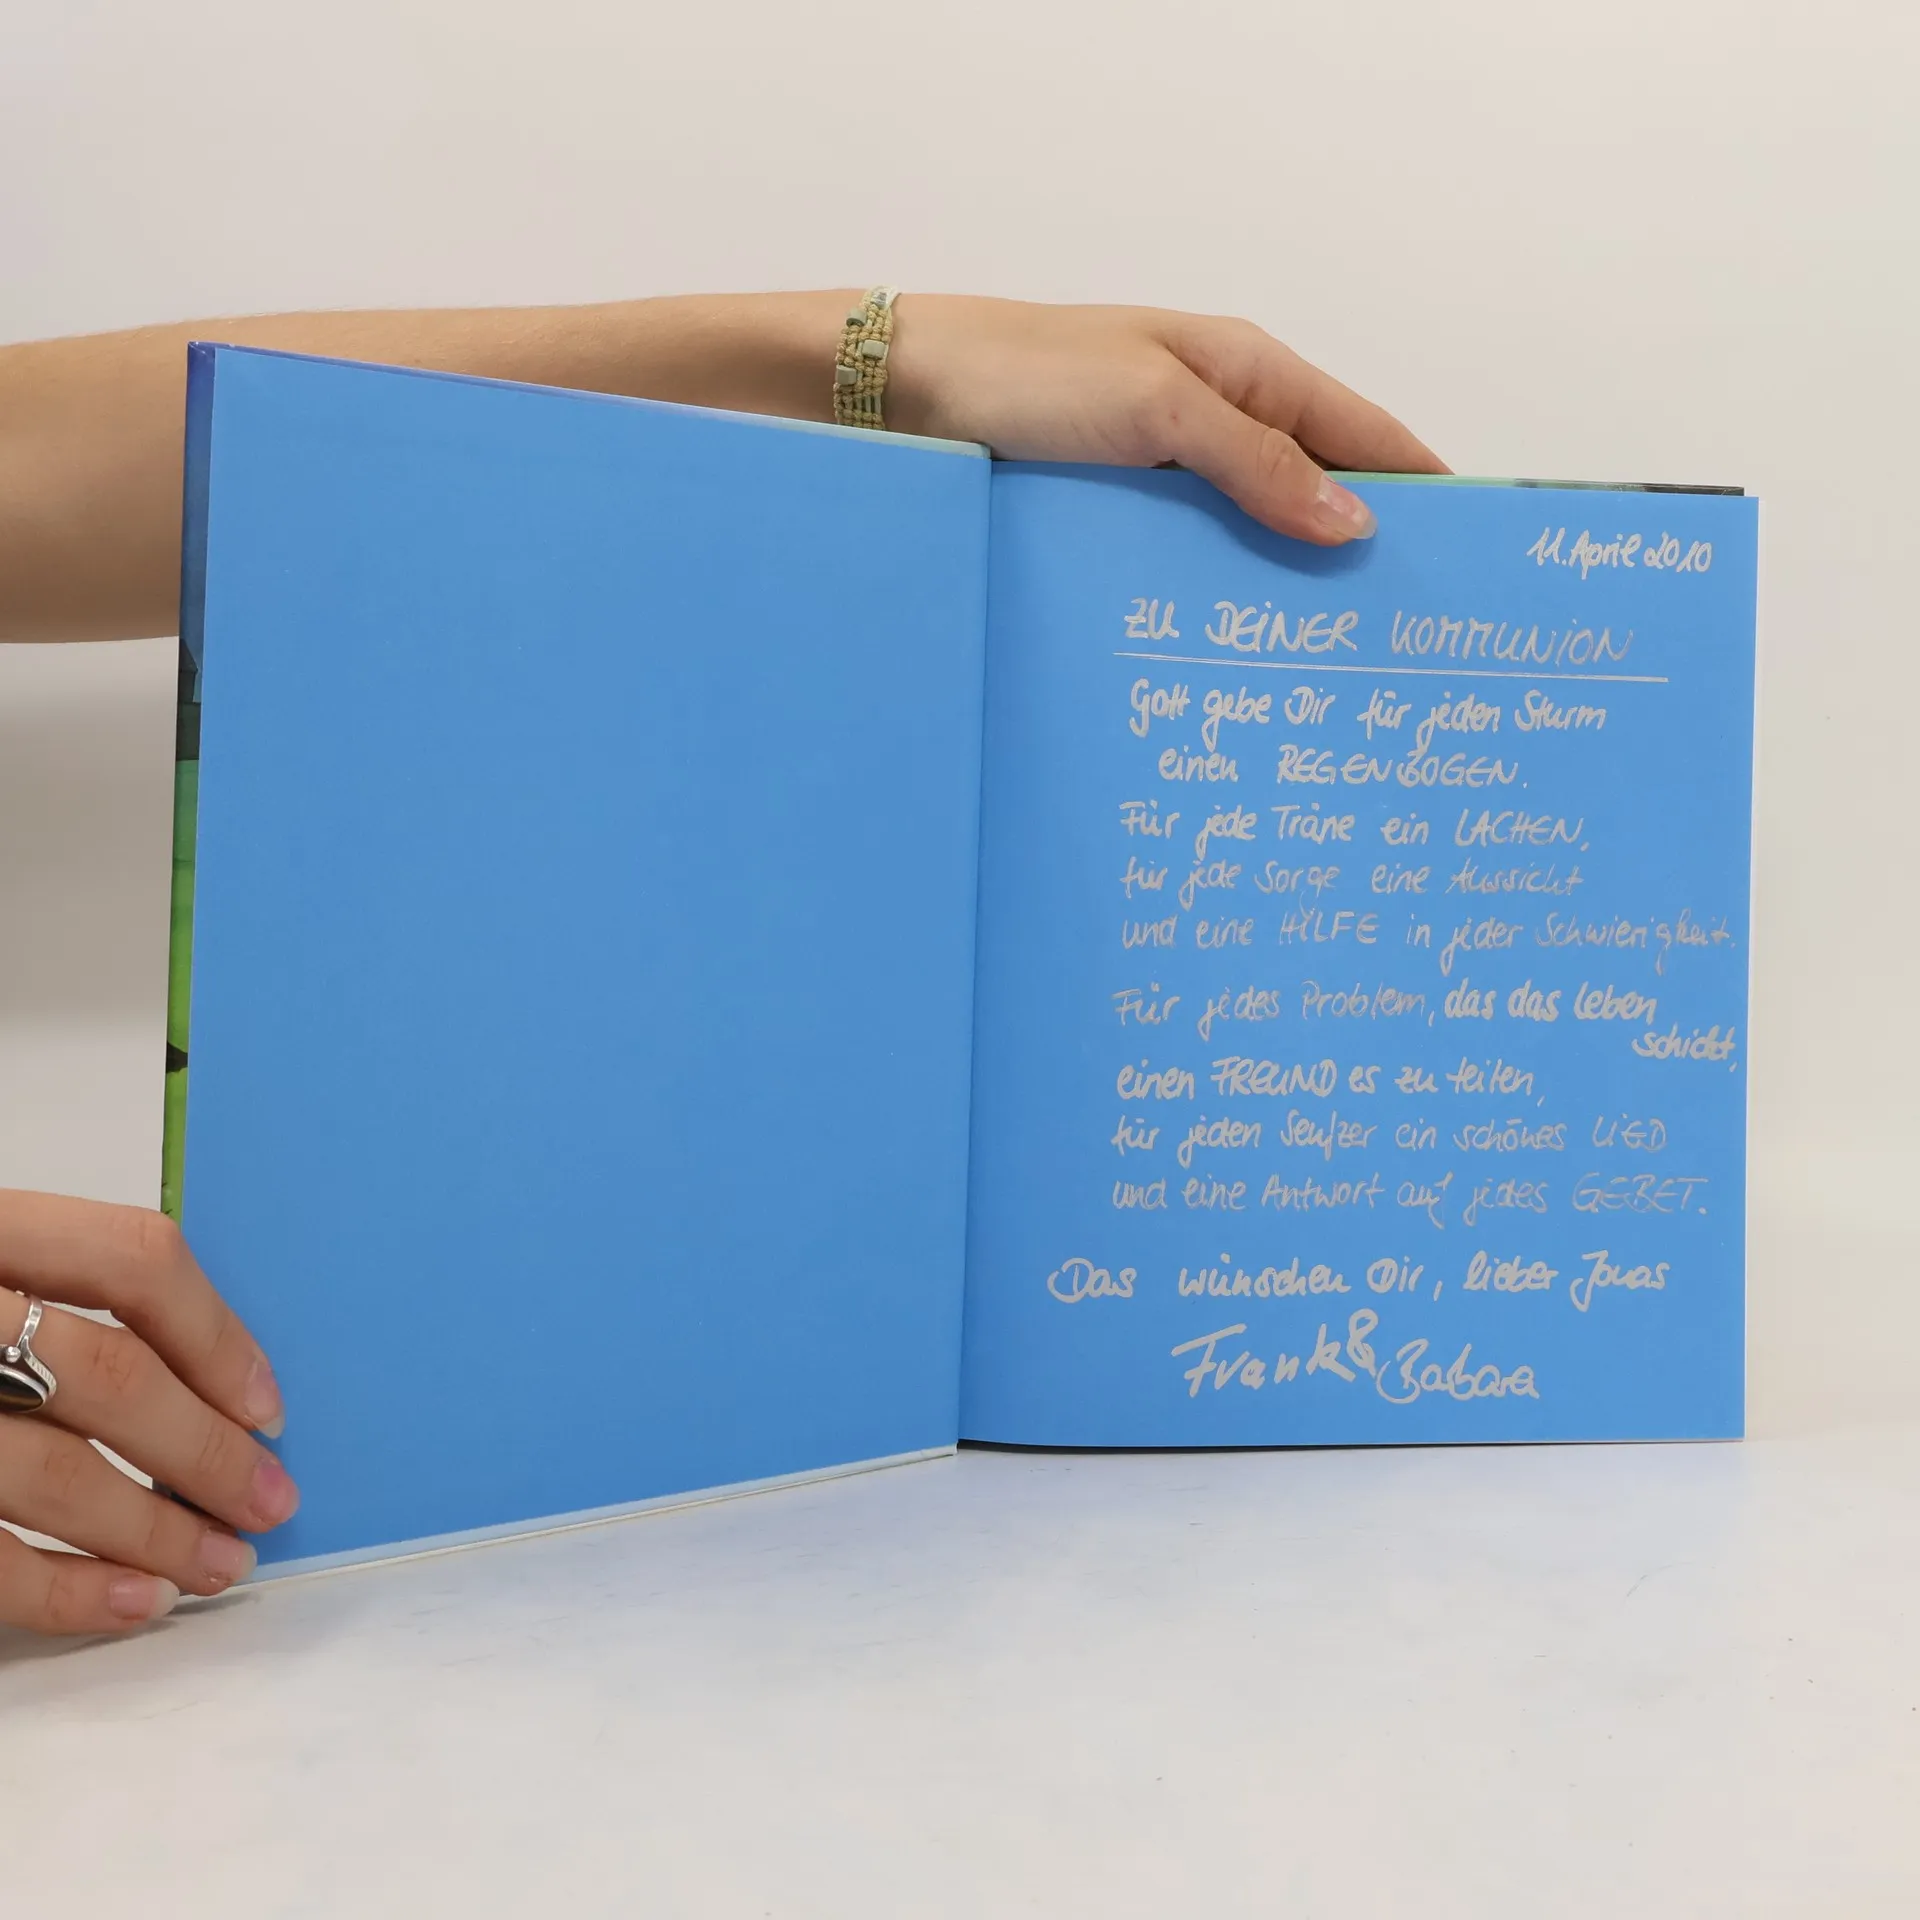 11. April 2010
ZU DEINER KOMMUNION
Gott gebe Dir für jeden Sturm
einen REGENBOGEN.
Für jede Träne ein LACHEN,
für jede Sorge eine Aussicht
und eine HILFE in jeder Schwierigkeit.
Für jedes Problem, das das Leben
schickt,
einen FREUND es zu teilen,
für jeden Seufzer ein schönes LIED
und eine Antwort auf jedes GEBET.
Das wünschen Dir, lieber Jonas
Frank & Babara